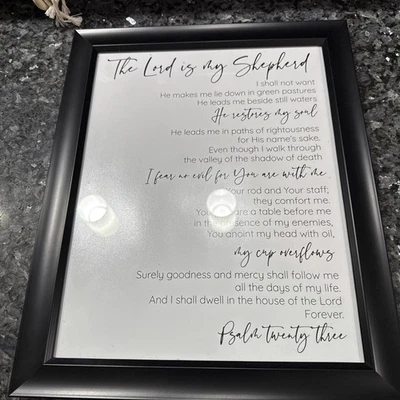 The Lord is my Shepherd
I shall not want
He makes me lie down in green pastures
He leads me beside still waters
He restores my soul
He leads me in paths of rightousness
for His name's sake.
Even though I walk through
the valley of the shadow of death
I fear no evil for You are with me
Your rod and Your staff;
they comfort me.
You are a table before me
in the presence of my enemies,
You anoint my head with oil,
my cup overflows
Surely goodness and mercy shall follow me
all the days of my life.
And I shall dwell in the house of the Lord
Forever.
Psalm twenty three